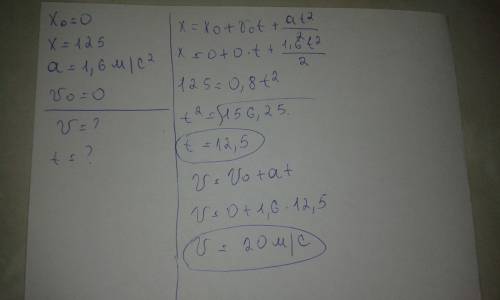 x₀=0
x=125
a=1,6 м/с²
v₀=0
v=?
t=?
x=x₀+v₀t+at²/2
x=0+0·t+1,6t²/2
125=0,8t²
t²=√156,25
t=12,5
v=v₀+at
v=0+1,6·12,5
v=20 м/с